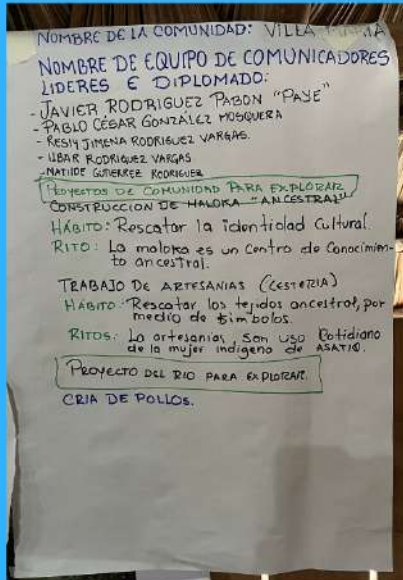 NOMBRE DE LA COMUNIDAD: VILLA MARIA
NOMBRE DE EQUIPO DE COMUNICADORES
LIDERES E DIPLOMADO:
- JAVIER RODRIGUEZ PABON "PAYE"
- PABLO CÉSAR GONZÁLEZ MOSQUERA
- RESIY JIMENA RODRIGUEZ VARGAS.
- ILBAR RODRIGUEZ VARGAS
- MATILDE GUTIERREZ RODRIGUEZ
PROYECTOS DE COMUNIDAD PARA EXPLORAR
CONSTRUCCION DE MALOKA "ANCESTRAL"
HÁBITO: Rescatar la identidad Cultural.
RITO: La maloka es un Centro de Conocimien-
to ancestral.
TRABAJO DE ARTESANIAS (CESTERIA)
HÁBITO: Rescatar los tejidos ancestral, por
medio de símbolos.
RITOS: La artesanias, son uso Cotidiano
de la mujer indigena de ASATIQ.
PROYECTO DEL RIO PARA EXPLORAR.
CRIA DE POLLOS.